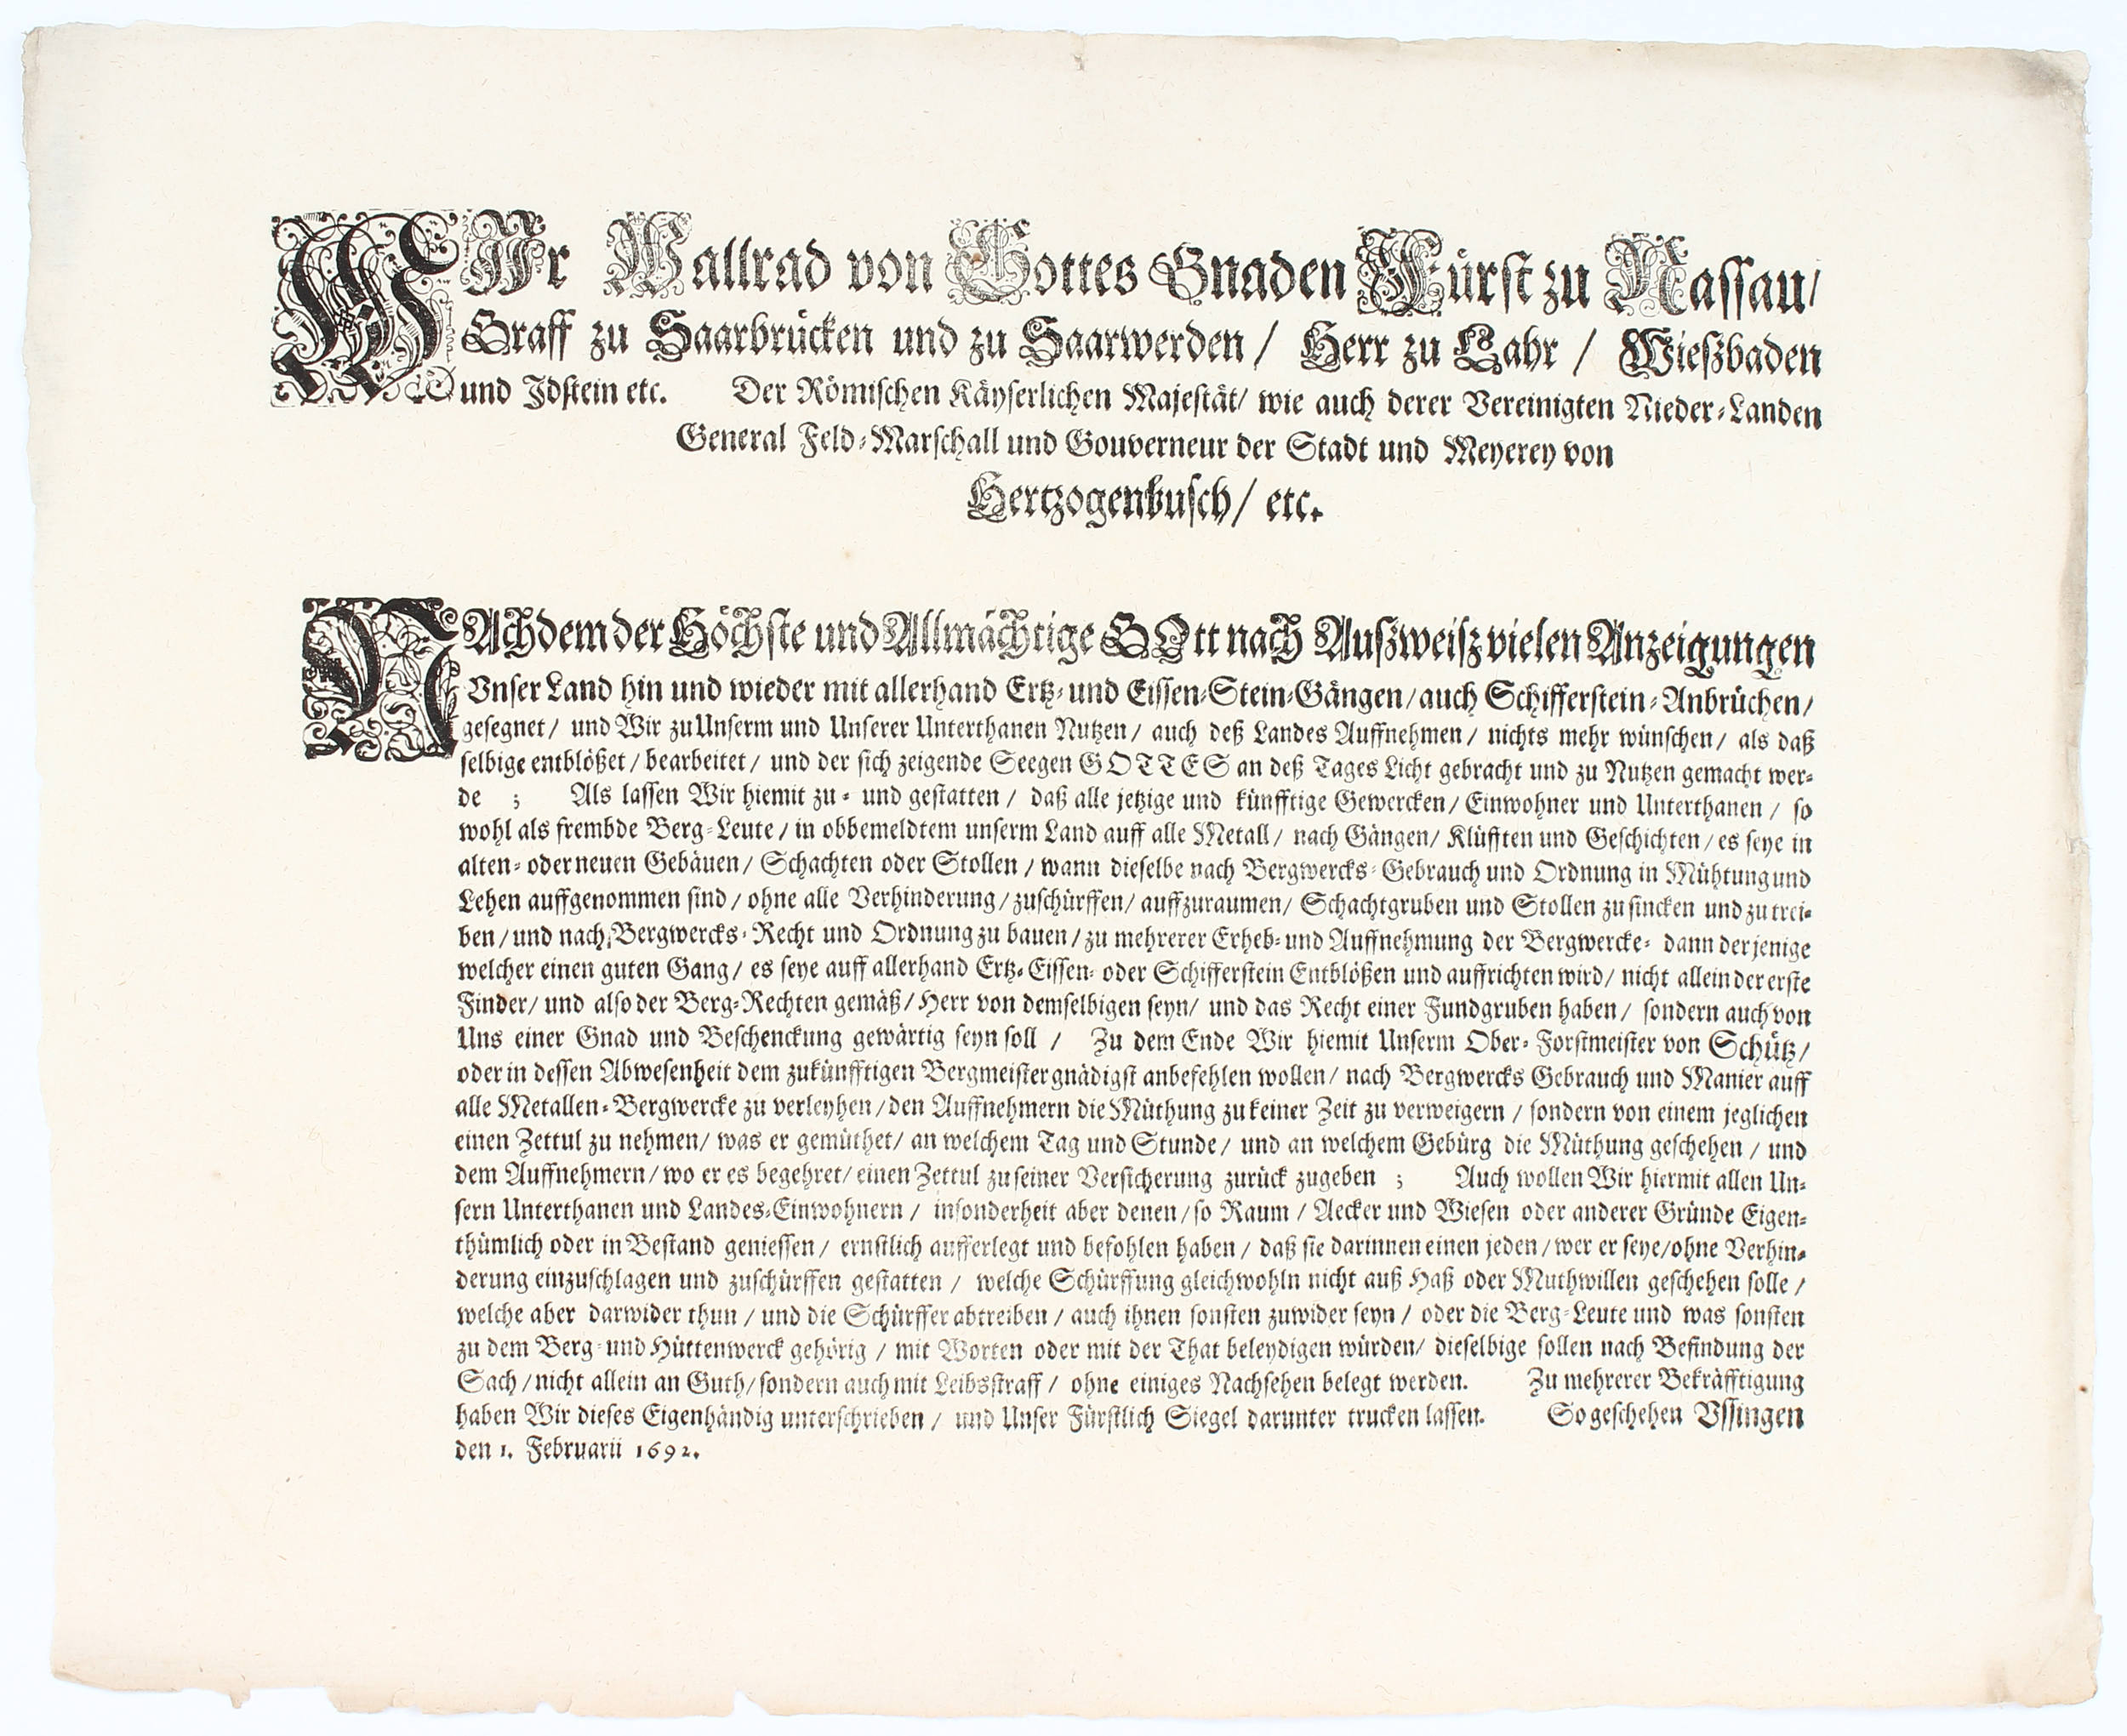 WIr Wallrad von Gottes Gnaden Fürst zu Nassau/
Graff zu Saarbrücken und zu Saarwerden / Herr zu Lahr / Wießbaden
und Idstein etc. Der Römischen Käyserlichen Majestät/ wie auch derer Vereinigten Nieder-Landen
General Feld-Marschall und Gouverneur der Stadt und Meyerey von
Hertzogenbusch/ etc.
NAchdem der Höchste und Allmächtige GOtt nach Außweisz vielen Anzeigungen
Vnser Land hin und wieder mit allerhand Ertz- und Eissen-Stein-Gängen/ auch Schifferstein-Anbrüchen/
gesegnet/ und Wir zu Unserm und Unserer Unterthanen Nutzen/ auch deß Landes Auffnehmen/ nichts mehr wünschen/ als daß
selbige entblößet/ bearbeitet/ und der sich zeigende Seegen GOTTES an deß Tages Licht gebracht und zu Nutzen gemacht wer-
de ; Als lassen Wir hiemit zu- und gestatten/ daß alle jetzige und künfftige Gewercken/ Einwohner und Unterthanen/ so
wohl als frembde Berg-Leute/ in obbemeldtem unserm Land auff alle Metall/ nach Gängen/ Klüfften und Geschichten/ es seye in
alten- oder neuen Gebäuen/ Schachten oder Stollen/ wann dieselbe nach Bergwercks-Gebrauch und Ordnung in Mühtung und
Lehen auffgenommen sind/ ohne alle Verhinderung/ zuschürffen/ auffzuraumen/ Schachtgruben und Stollen zu sincken und zu trei-
ben/ und nach Bergwercks-Recht und Ordnung zu bauen/ zu mehrerer Erheb- und Auffnehmung der Bergwercke- dann derjenige
welcher einen guten Gang/ es seye auff allerhand Ertz- Eissen- oder Schifferstein Entblößen und auffrichten wird/ nicht allein der erste
Finder/ und also der Berg-Rechten gemäß/ Herr von demselbigen seyn/ und das Recht einer Fundgruben haben/ sondern auch von
Uns einer Gnad und Beschenckung gewärtig seyn soll / Zu dem Ende Wir hiemit Unserm Ober-Forstmeister von Schütz/
oder in dessen Abwesenheit dem zukünfftigen Bergmeister gnädigst anbefehlen wollen/ nach Bergwercks Gebrauch und Manier auff
alle Metallen-Bergwercke zu verleyhen/ den Auffnehmern die Müthung zu keiner Zeit zu verweigern/ sondern von einem jeglichen
einen Zettul zu nehmen/ was er gemüthet/ an welchem Tag und Stunde/ und an welchem Gebürg die Müthung geschehen/ und
dem Auffnehmern/ wo er es begehret/ einen Zettul zu seiner Versicherung zurück zugeben ; Auch wollen Wir hiermit allen Un-
sern Unterthanen und Landes-Einwohnern/ insonderheit aber denen/ so Raum/ Aecker und Wiesen oder anderer Gründe Eigen-
thümlich oder in Bestand geniessen/ ernstlich aufferlegt und befohlen haben/ daß sie darinnen einen jeden/ wer er seye/ ohne Verhin-
derung einzuschlagen und zuschürffen gestatten/ welche Schürffung gleichwohln nicht auß Haß oder Muthwillen geschehen solle/
welche aber darwider thun/ und die Schürffer abtreiben/ auch ihnen sonsten zuwider seyn/ oder die Berg-Leute und was sonsten
zu dem Berg- und Hüttenwerck gehörig/ mit Worten oder mit der That beleydigen würden/ dieselbige sollen nach Befindung der
Sach/ nicht allein an Guth/ sondern auch mit Leibsstraff/ ohne einiges Nachsehen belegt werden. Zu mehrerer Bekräfftigung
haben Wir dieses Eigenhändig unterschrieben/ und Unser Fürstlich Siegel darunter trucken lassen. So geschehen Vssingen
den 1. Februarii 1692.